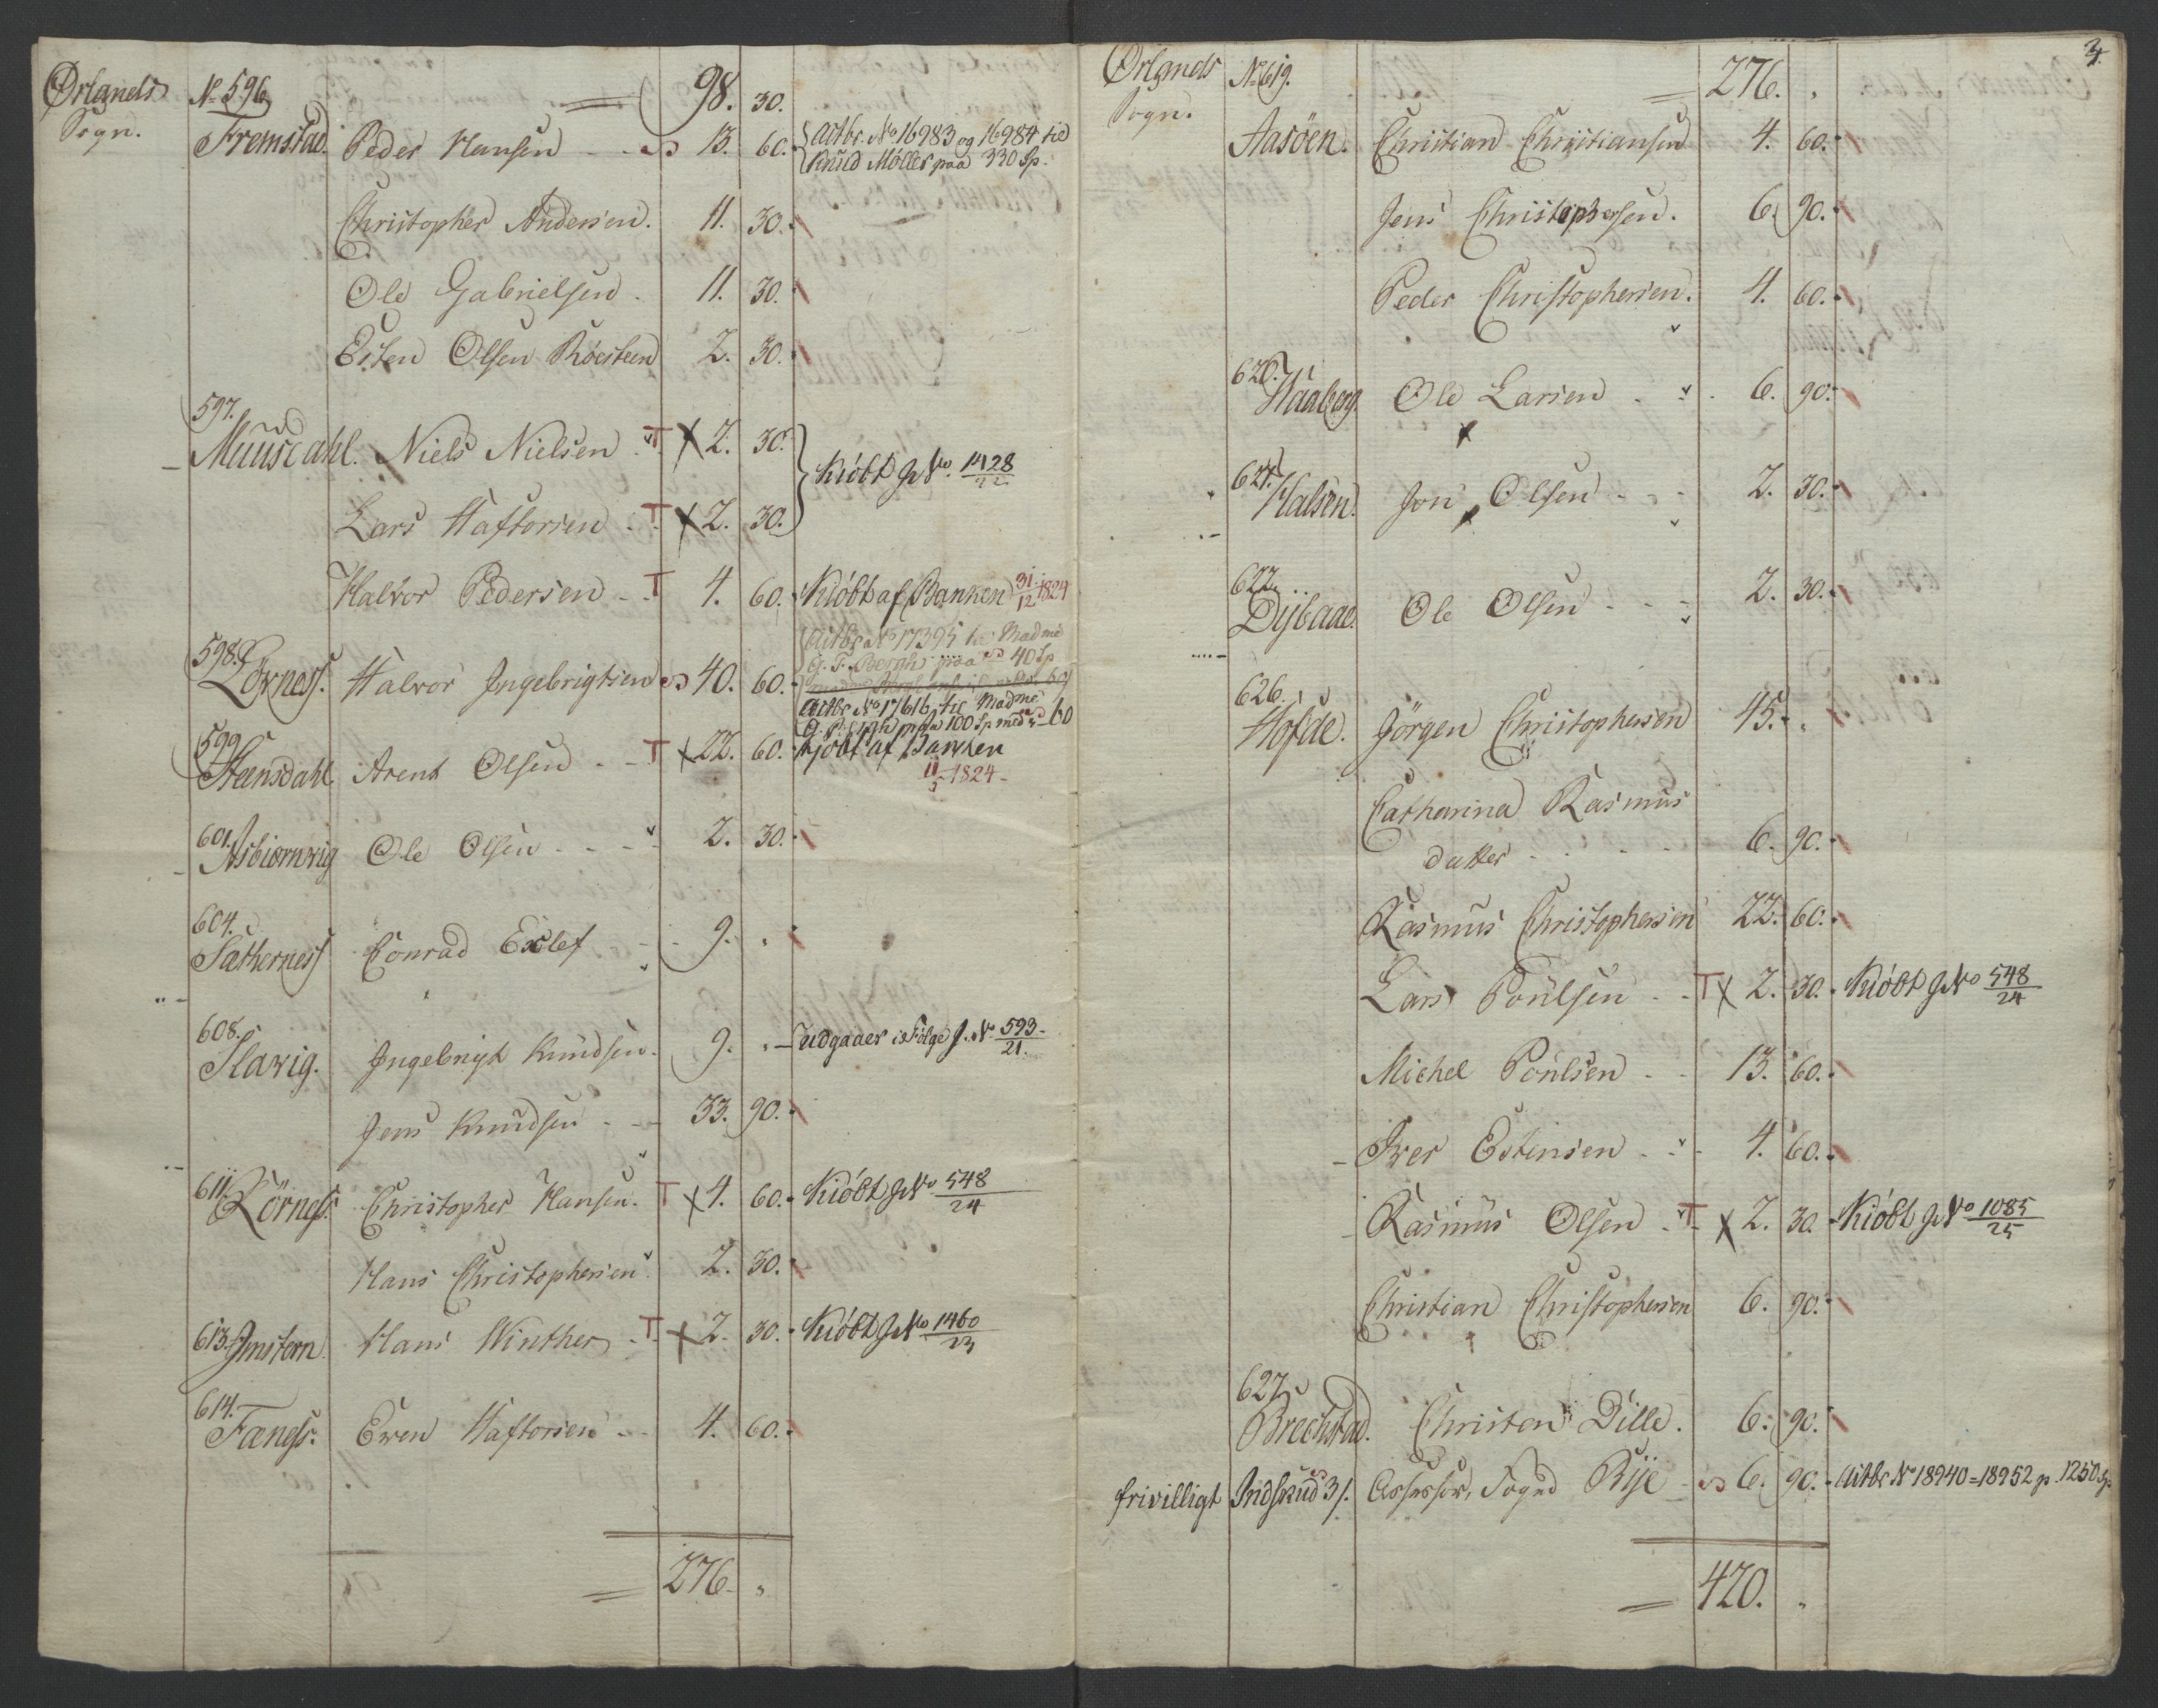 Ørlands N. 596 98. 30.
Sogn.
Fremstad. Peder Hansen 13. 60. Actbr. No. 16983 og 16984 til
Knud Möller paa 330 Sp.
Christopher Andersen. 11. 30.
Ole Gabrielsen. 11. 30.
Esten Olsen Röesteen 2. 30.
597.
Muusdahl. Niels Nielsen T x 2. 30.
Kiöbt J No. 1428/22
Lars Haftorsen T x 2. 30.
Halvor Pedersen T 4. 60. Kiöbt af Banken 31/12 1824
598. Actbr No 17395 til Madme
G. F. Bergh paa 40 Sp
Lörness. Halvor Ingebrigtsen 40. 60.
Actbr. No. 17616, til Madme
paa 100 Sp med 60
599.
Steensdahl. Arent Olsen T x 22. 60. Kjöbt af Banken
11/5 1824
601. Asbiornvig Ole Olsen 2. 30.
604.
Sætherness Conrad Exlef 9. "
608.
Slavig. Ingebrigt Knudsen. 9. " Udgaaer i Følge J. No 593/21.
Jens Knudsen 33. 90.
611. Lörness. Christopher Hansen. T x 4. 60. Kiöbt J No 548/24
Hans Christophersen 2. 30.
613. Imstern. Hans Winther T x 2. 30. Kiöbt J No 1460/23
614.
Fængs. Ewen Haftorsen 4. 60.
= 276. "
3.
Ørlands No 619. = 276. "
Sogn.
Aasöen. Christian Christiansen 4. 60.
Jens Christophersen. 6. 90.
Peder Christophersen. 4. 60.
620. Haaberg. Ole Larsen 6. 90.
621. Halsen. Jon Olsen 2. 30.
622.
Dÿbaae. Ole Olsen 2. 30.
626.
Höfde. Jörgen Christophersen 45. "
Catharina Rasmus
datter 6. 90.
Rasmus Christophersen 22. 60.
Lars Poulsen T x 2. 30. Kiöbt J No 548/24
Michel Poulsen 13. 60.
Iver Estensen 4. 60.
Rasmus Olsen T x 2. 30. Kiöbt J No 1085/25
Christian Christophersen 6. 90.
627.
Brechstad. Christen Dille. 6. 90.
frivilligt Indskud 3/. Assessor, Fogd Rÿe 6. 90. Actbr No 18940 = 18952 p. 1250 Sp.
= 420. "